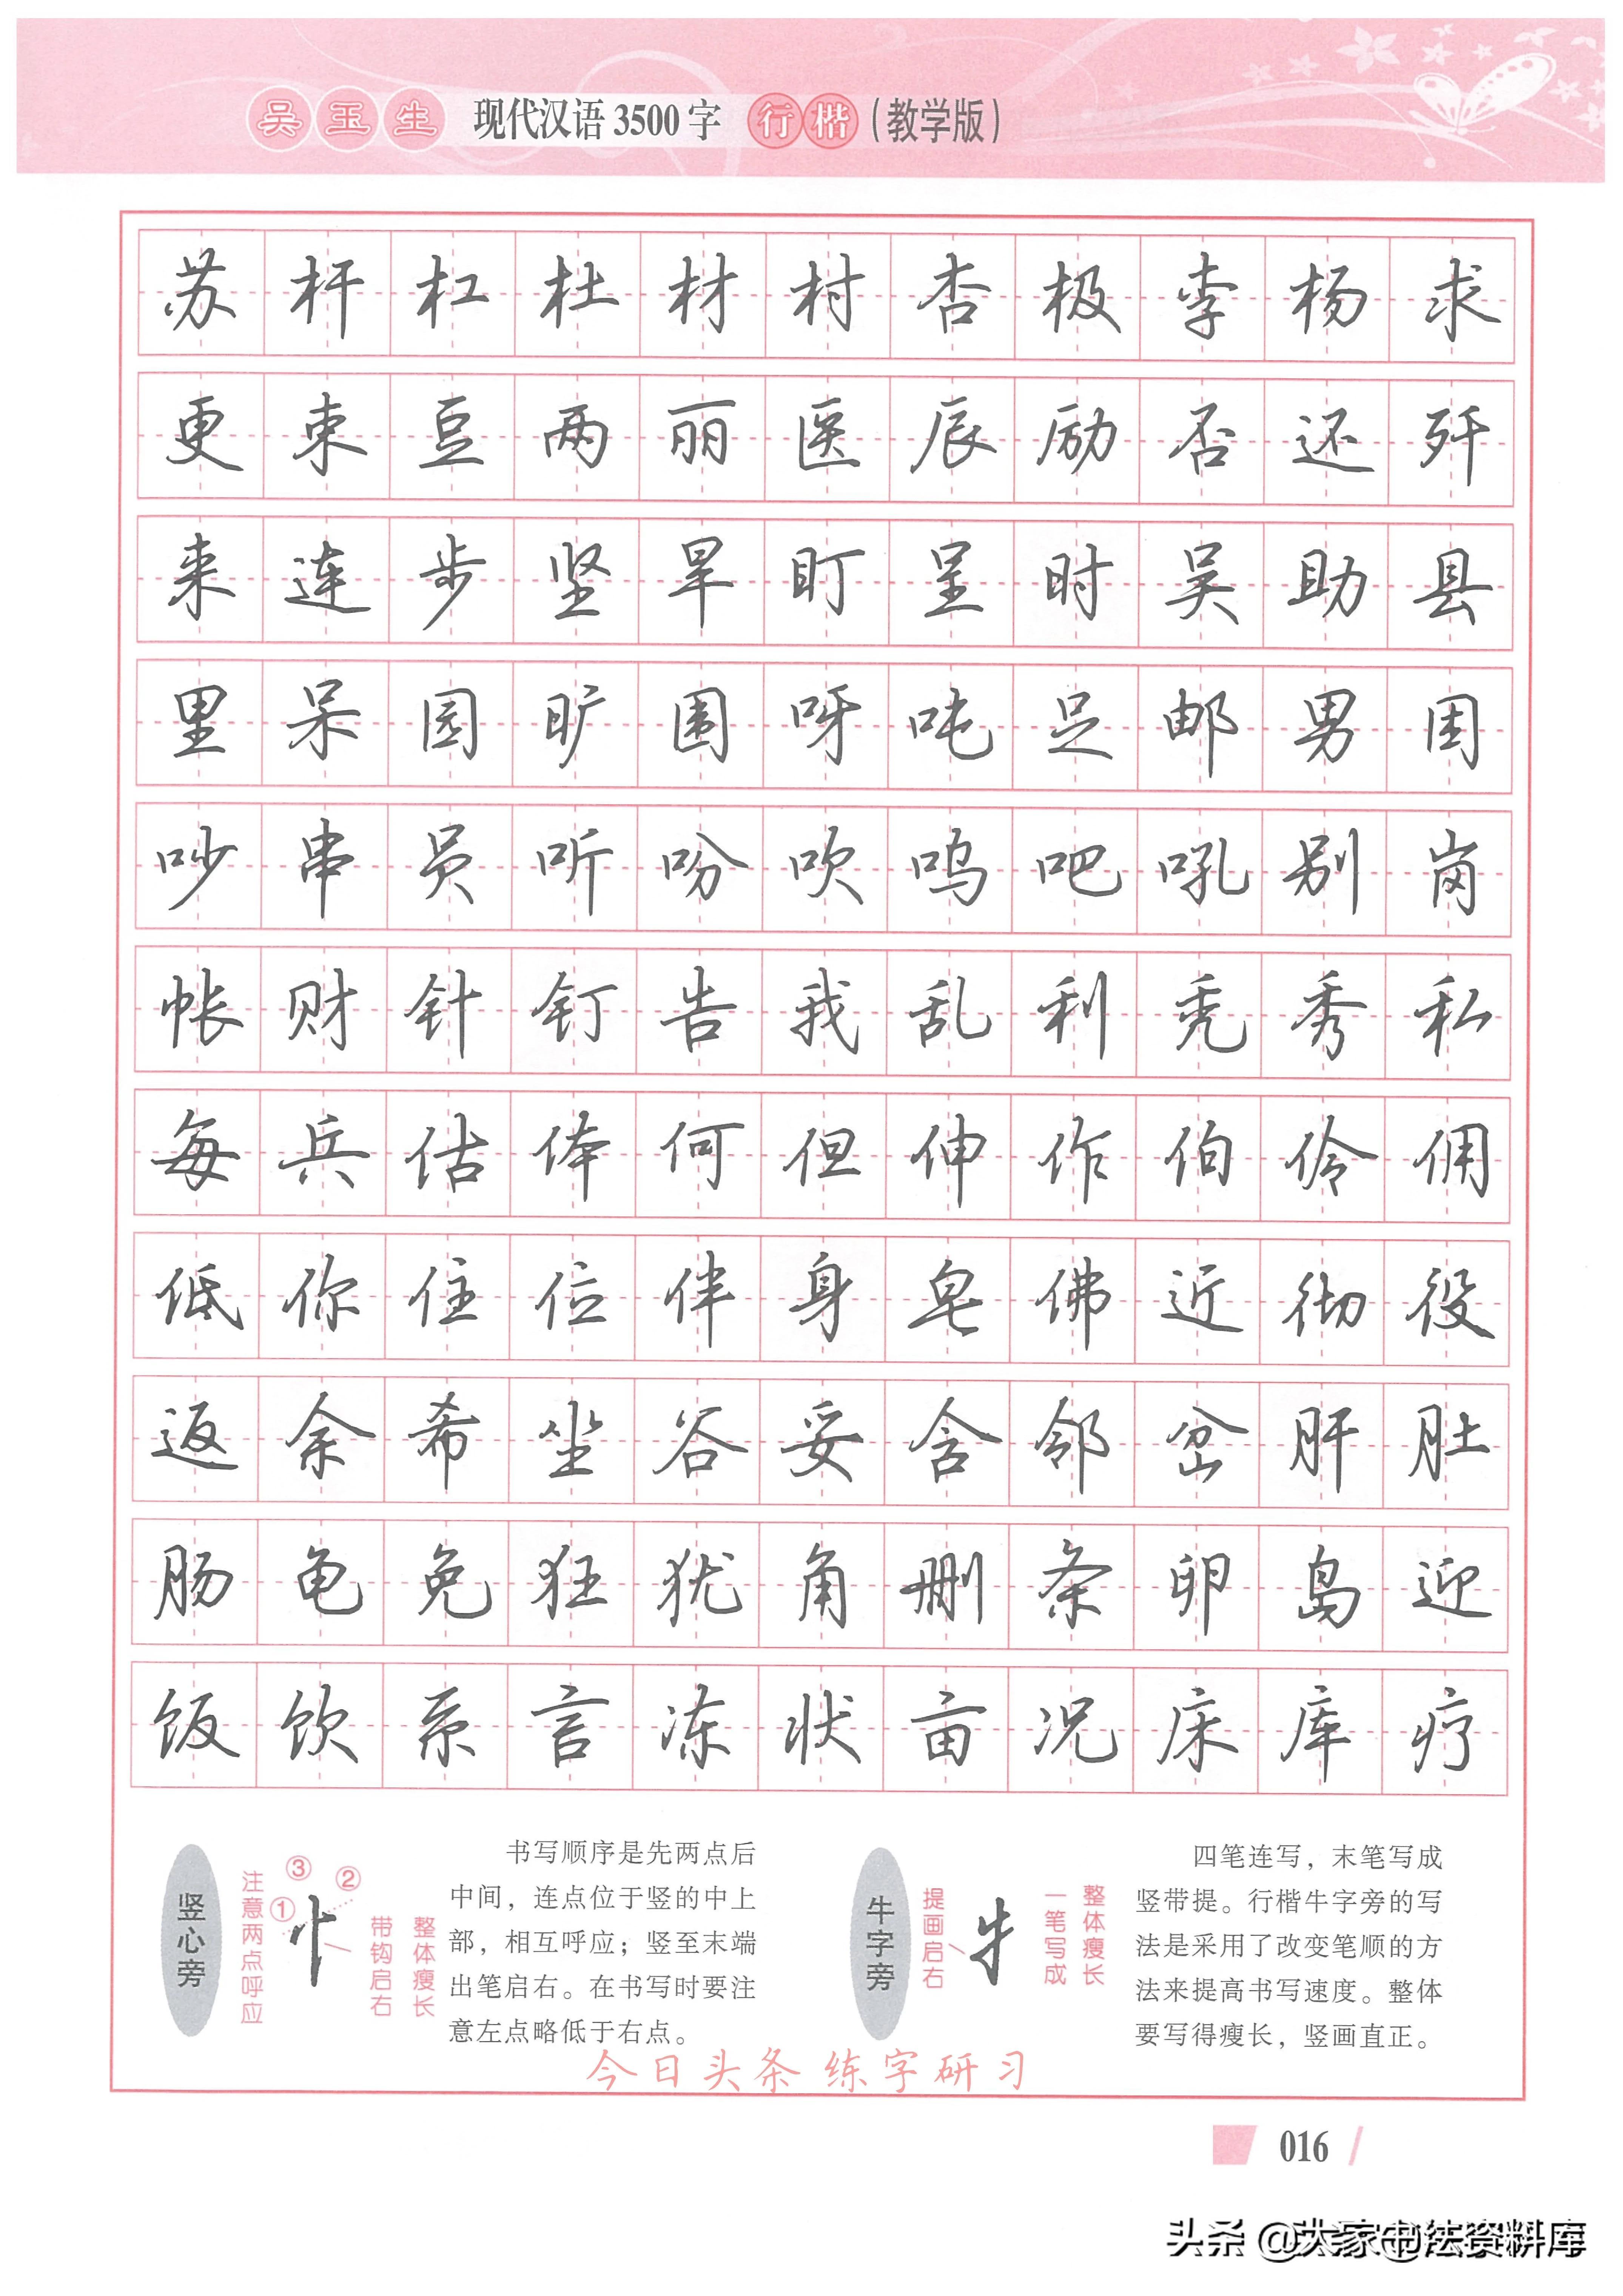 吴玉生 现代汉语3500字 行楷（教学版）
苏 杆 杠 杜 材 村 杏 极 李 杨 求
更 束 豆 两 丽 医 辰 励 否 还 歼
来 连 步 坚 旱 盯 呈 时 吴 助 县
里 呆 园 旷 围 呀 吨 足 邮 男 困
吵 串 员 听 吩 吹 呜 吧 吼 别 岗
帐 财 针 钉 告 我 乱 利 秃 秀 私
每 兵 估 体 何 但 伸 作 伯 伶 佣
低 你 住 位 伴 身 皂 佛 近 彻 役
返 余 希 坐 谷 妥 含 邻 岔 肝 肚
肠 龟 免 狂 犹 角 删 条 卵 岛 迎
饭 饮 系 言 冻 状 亩 况 床 库 疗
竖心旁
注意两点呼应
① ② ③
忄
带钩启右
整体瘦长
书写顺序是先两点后
中间，连点位于竖的中上
部，相互呼应；竖至末端
出笔启右。在书写时要注
意左点略低于右点。
牛字旁
提画启右
牜
一笔写成
整体瘦长
四笔连写，末笔写成
竖带提。行楷牛字旁的写
法是采用了改变笔顺的方
法来提高书写速度。整体
要写得瘦长，竖画直正。
今日头条 练字研习
016
头条 @大家书法资料库